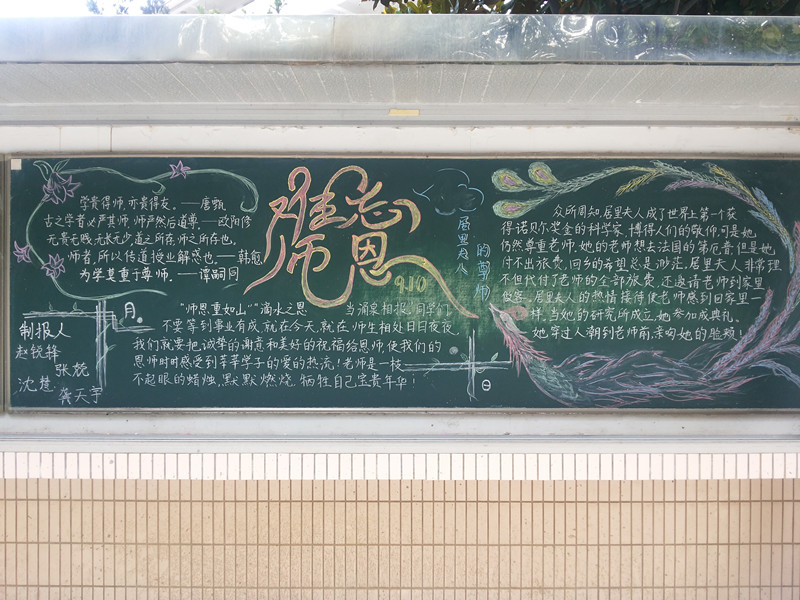 学贵得师,亦贵得友。——唐甄
古之学者必严其师,师严然后道尊。——欧阳修
无贵无贱,无长无少,道之所存,师之所存也。
师者,所以传道授业解惑也。——韩愈
为学莫重于尊师。——谭嗣同
难忘
师恩
9.10
“师恩重如山”“滴水之恩 当涌泉相报”同学们
不要等到事业有成,就在今天,就在师生相处日日夜夜
我们就要把诚挚的谢意和美好的祝福给恩师,使我们的
恩师时时感受到莘莘学子的爱的热流!老师是一枝
不起眼的蜡烛,默默燃烧,牺牲自己宝贵年华!
月
日
制报人
赵锐铎
张
沈慧
龚天宇
居里夫人
的尊师
众所周知,居里夫人成了世界上第一个获
得诺贝尔奖金的科学家,博得人们的敬仰,可是她
仍然尊重老师,她的老师想去法国的第厄普但是她
付不出旅费,回乡的希望总是渺茫,居里夫人非常理
不但代付了老师的全部旅费,还邀请老师到家里
做客,居里夫人的热情接待使老师感到回家里一
样,当她的研究所成立,她参加成典礼。
她穿过人潮到老师前,亲吻她的脸颊!